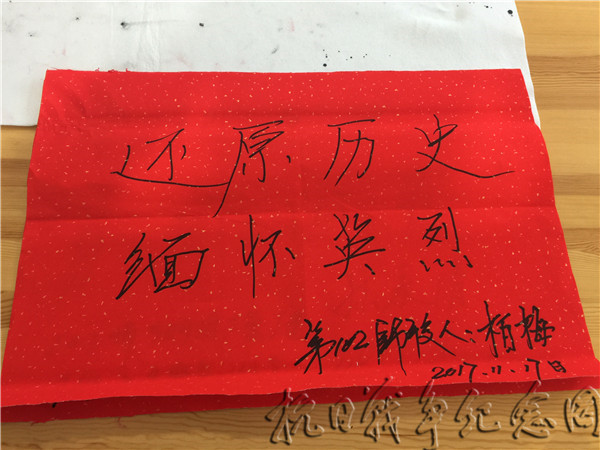 还原历史
缅怀英烈
第102师後人：柏梅
2017.11.17日
抗日战争纪念网